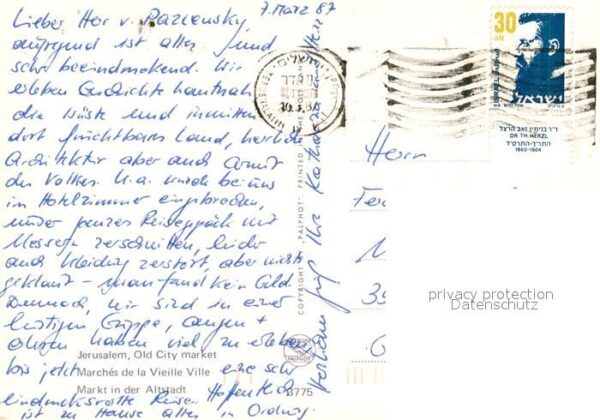 7. März 87
Lieber Herr v.
aufregend ist alles und
sehr beeindruckend. Wir
erleben Geschichte hautnah
die Wüste und inmitten
dort fruchtbares Land, herrliche
Architektur aber auch Armut
des Volkes. U.a. wurde bei uns
im Hotelzimmer eingebrochen,
unser ganzes Reisegepäck mit
Messern zerschnitten, leider
auch Kleidung zerstört, aber nichts
geklaut – man fand kein Geld.
Dennoch, wir sind in einer
lustigen Gruppe, Augen +
Ohren haben viel zu erleben
bis jetzt eine sehr
eindrucksvolle Reise. Hoffentlich
ist zu Hause alles in Ordnung.
Ihre Katharina
Jerusalem, Old City market
Marchés de la Vieille Ville
Markt in der Altstadt
8775
COPYRIGHT "PALPHOT" PRINTED IN
PALPHOT
30
ישראל
ד״ר בנימין זאב הרצל
DR. TH. HERZL
התר״ך-התרס״ד
1860-1904
Herrn
privacy protection
Datenschutz